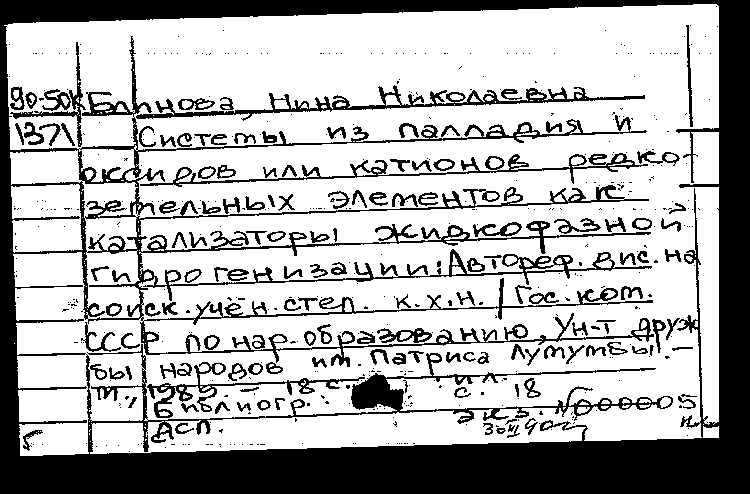 90-50К Блинова, Нина Николаевна
1371 Системы из палладия и
оксидов или катионов редко-
земельных элементов как
катализаторы жидкофазной
гидрогенизации: Автореф. дис. на
соиск. учён. степ. к.х.н. / Гос. ком.
СССР по нар. образованию, Ун-т друж
бы народов им. Патриса Лумумбы. –
М., 1989. – 18 с. ил.
Библиогр.: с. 18
Дсп. экз. №000005